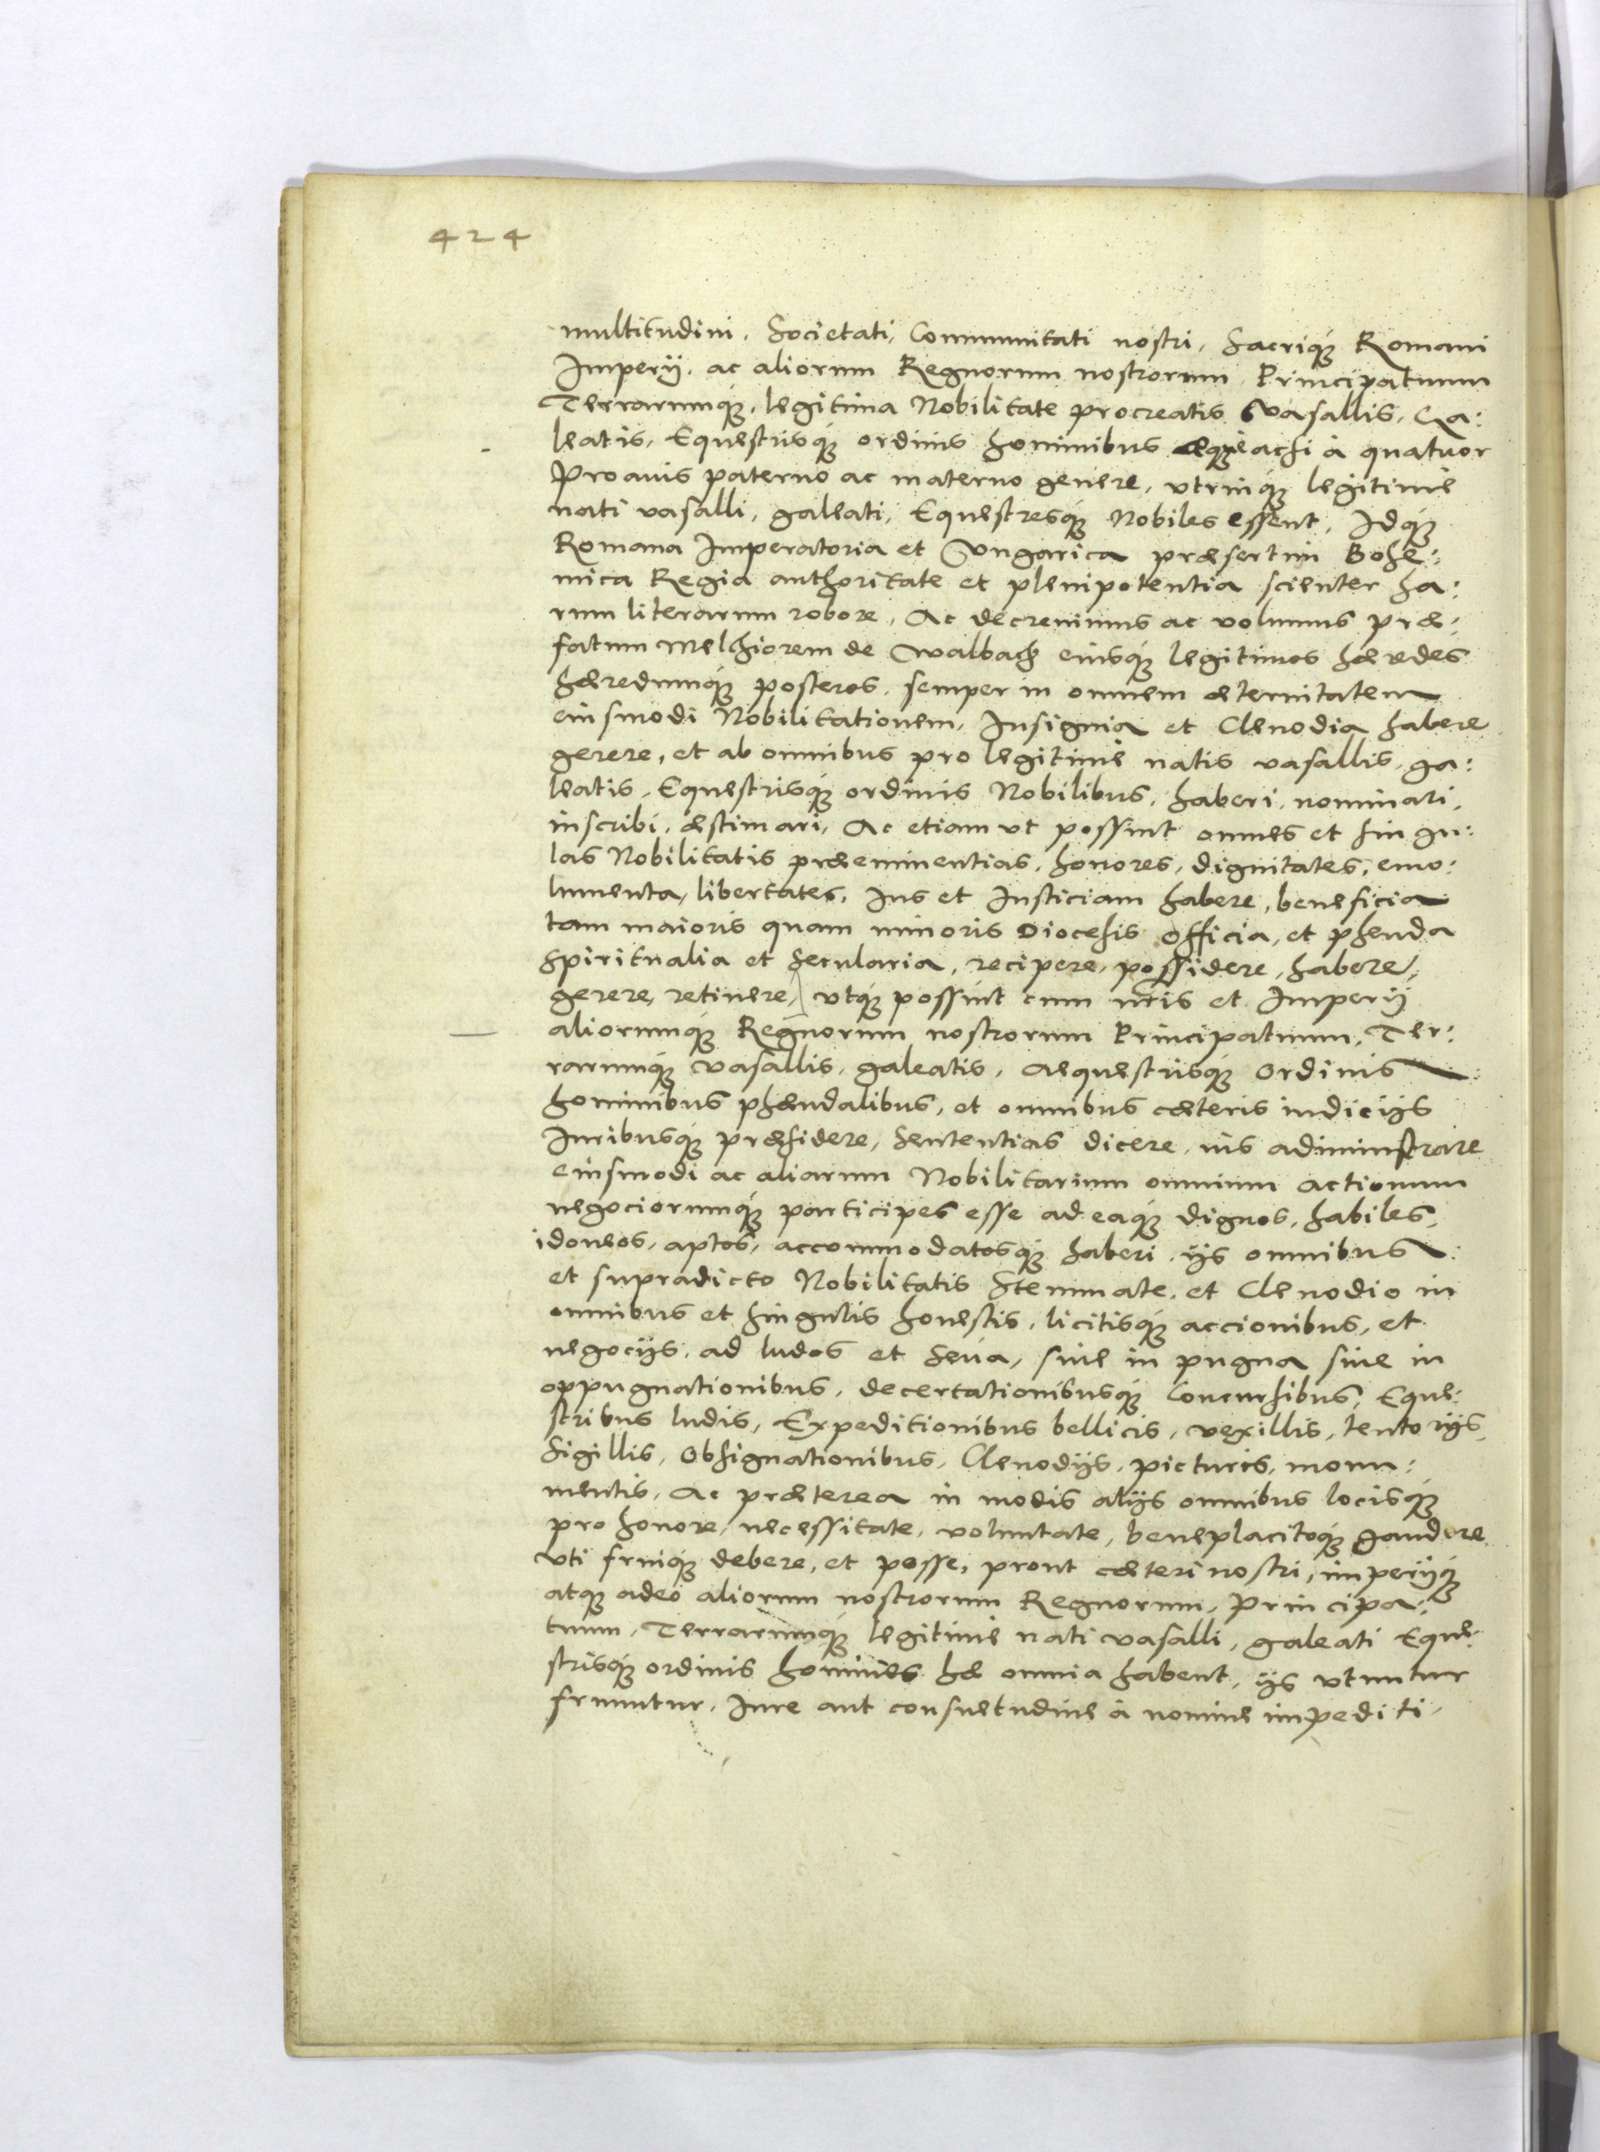 424
multitudini, Societati, Communitati nostri, Sacriq́ue Romani
Imperij, ac aliorum Regnorum nostrorum Principatuum
Terrarumq́ue, legitima Nobilitate procreatis Vasallis, Ga:
leatis, Equestrisq́ue ordinis hominibus æque ac si à quatuor
Proauis paterno ac materno genere, vtrinq́ue legitime
nati vasalli, galeati, Equestresq́ue Nobiles essent, Idq́ue
Romana Imperatoria et Vngarica præsertim Bohe:
mica Regia authoritate et plenipotentia scienter ha:
rum literarum robore, Ac decreuimus ac volumus præ:
fatum Melchiorem de Walbach eiusq́ue legitimos hæredes
hæredumq́ue posteros, semper in omnem æternitatem
eiusmodi Nobilitationem, Insignia et Clenodia habere
gerere, et ab omnibus pro legitimè natis vasallis, ga:
leatis, Equestrisq́ue ordinis Nobilibus, haberi, nominari,
inscribi, æstimari, Ac etiam vt possint omnes et singu:
las Nobilitatis præeminentias, honores, dignitates, emo:
lumenta, libertates, Ius et Iusticiam habere, beneficia
tam maioris quam minoris Diocesis officia, et pheuda
Spiritualia et Secularia, recipere, possidere, habere,
gerere, retinere, vtq́ue possint cum nr̃is et Imperij
aliorumq́ue Regnorum nostrorum Principatuum, Ter:
rarumq́ue vasallis, galeatis, Aequestrisq́ue ordinis
hominibus phæudalibus, et omnibus cæteris iudicijs
Iuribusq́ue præsidere, Sententias dicere, ius adiminstrare
eiusmodi ac aliarum Nobilitarium omnium actionum
negociorumq́ue participes esse ad eaq́ue dignos, habiles,
idoneos, aptos, accommodatosq́ue haberi, ijs omnibus
et supradicto Nobilitatis Stemmate, et Clenodio in
omnibus et singulis honestis, licitisq́ue accionibus, et
negocijs, ad ludos et seria, siue in pugna siue in
oppugnationibus, decertationibusq́ue Concursibus, Eque:
stribus ludis, Expeditionibus bellicis, vexillis, tentorijs,
Sigillis, Obsignationibus, Clenodijs, picturis, monu:
mentis, Ac præterea in modis alijs omnibus locisq́ue
pro honore, necessitate, voluntate, beneplacitoq́ue gaudere
vti fruiq́ue debere, et posse, prout cæteri nostri, imperijq́ue
atq́ue adeò aliorum nostrorum Regnorum, Principa:
tuum, Terrarumq́ue legitimè nati vasalli, galeati Eque:
strisq́ue ordinis homines hæ omnia habent, ijs vtuntur
fruuntur, Iure aut consuetudine à nomine impediti,